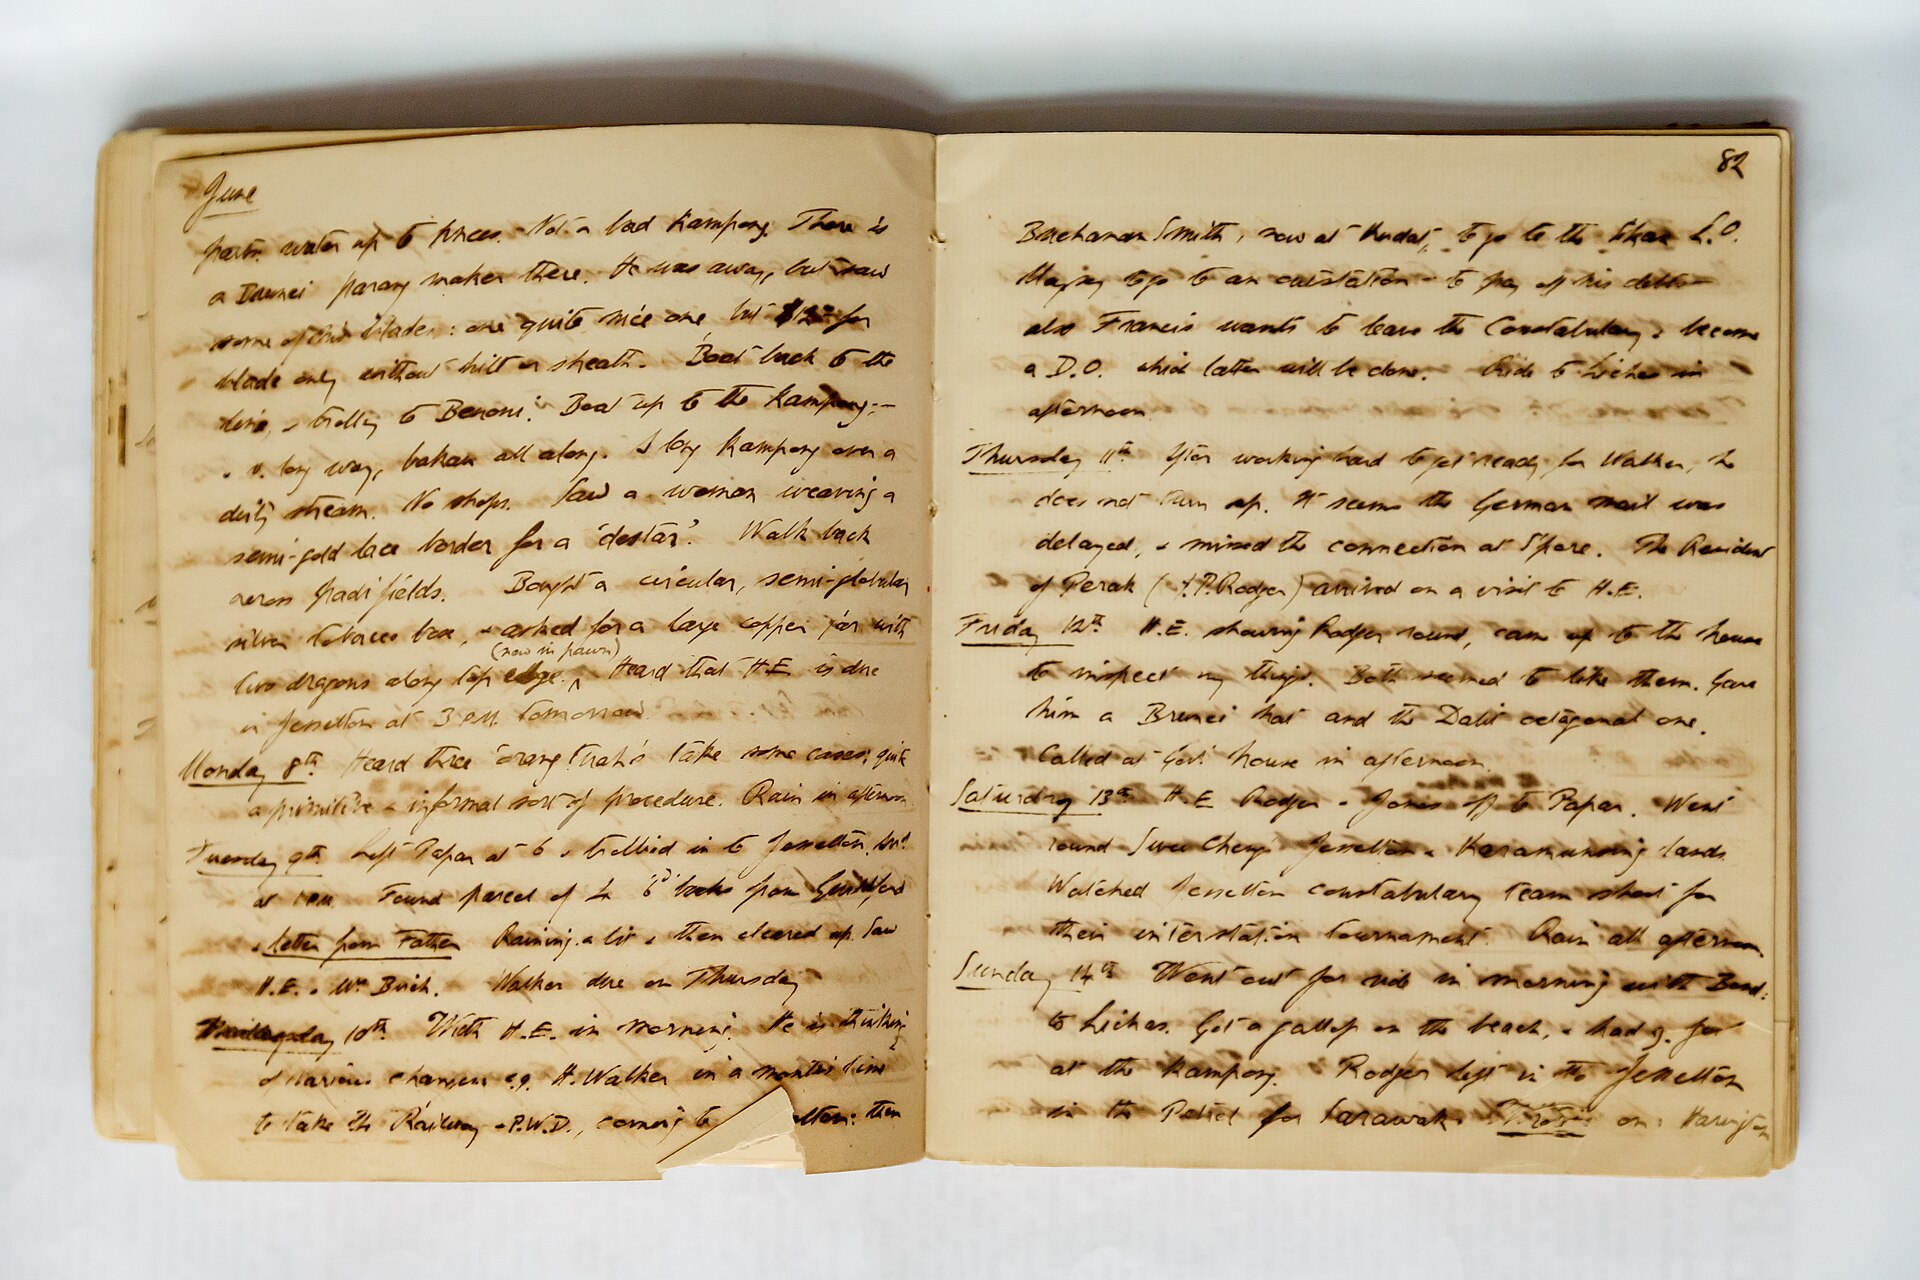 June
parts. water up to knees. Not a bad Kampong. There is
a Brunei parang maker there. He was away, but saw
some of his blades: one quite nice one but $12 for
blade only without hilt or sheath. Boat back to the
line, & trolly to Benoni. Boat up to the Kampong:-
a v. long way, bakau all along. A long Kampong over a
dirty stream. No shops. Saw a woman weaving a
semi-gold lace border for a 'destar'. Walk back
across padi fields. Bought a circular, semi-globular
silver tobacco box, & asked for a large copper jar with
(now in pawn)
two dragons along top edge. ^ Heard that H.E. is due
in Jesselton at 3 P.M. tomorrow.
Monday 8th Heard three 'orang tuah's take some cases; quite
a primitive & informal sort of procedure. Rain in afternoon
Tuesday 9th Left Papar at 6 & trollied in to Jesselton,
at 1 P.M. Found parcel of 4 6d books from Guildford
& letter from Father Raining a bit & then cleared up. Saw
H.E. & Mr Birch. Walker due on Thursday
Wednesday 10th With H.E. in morning. He is thinking
of various changes e.g. H. Walker in a month's time
to take the Railway & P.W.D., coming to lton: then
82
Buchanan Smith, now at Kudat, to go to the L.O.
to go to an outstation - to pay off his debts -
also Francis wants to leave the Constabulary & become
a D.O. which latter will be done. Ride to Likas in
afternoon.
Thursday 11th After working hard to get ready for Walker, he
does not turn up. It seems the German mail was
delayed, & missed the connection at S'pore. The Resident
of Perak (J.P. Rodger) arrived on a visit to H.E.
Friday 12th H.E. showing Rodger round, came up to the house
to inspect my things. Both seemed to like them. Gave
him a Brunei hat and the Dalit octagonal one.
Called at Govt house in afternoon.
Saturday 13th H.E. Rodger & Jones off to Papar. Went
round Swee Cheng's Jesselton & Karamunsing lands
Watched Jesselton constabulary team shoot for
their interstation tournament. Rain all afternoon.
Sunday 14th Went out for ride in morning with Bond:
to Likas. Got a gallop on the beach, & had
at the Kampong. Rodger left in the Jesselton
in the Petrel for Sarawak. on: Harington